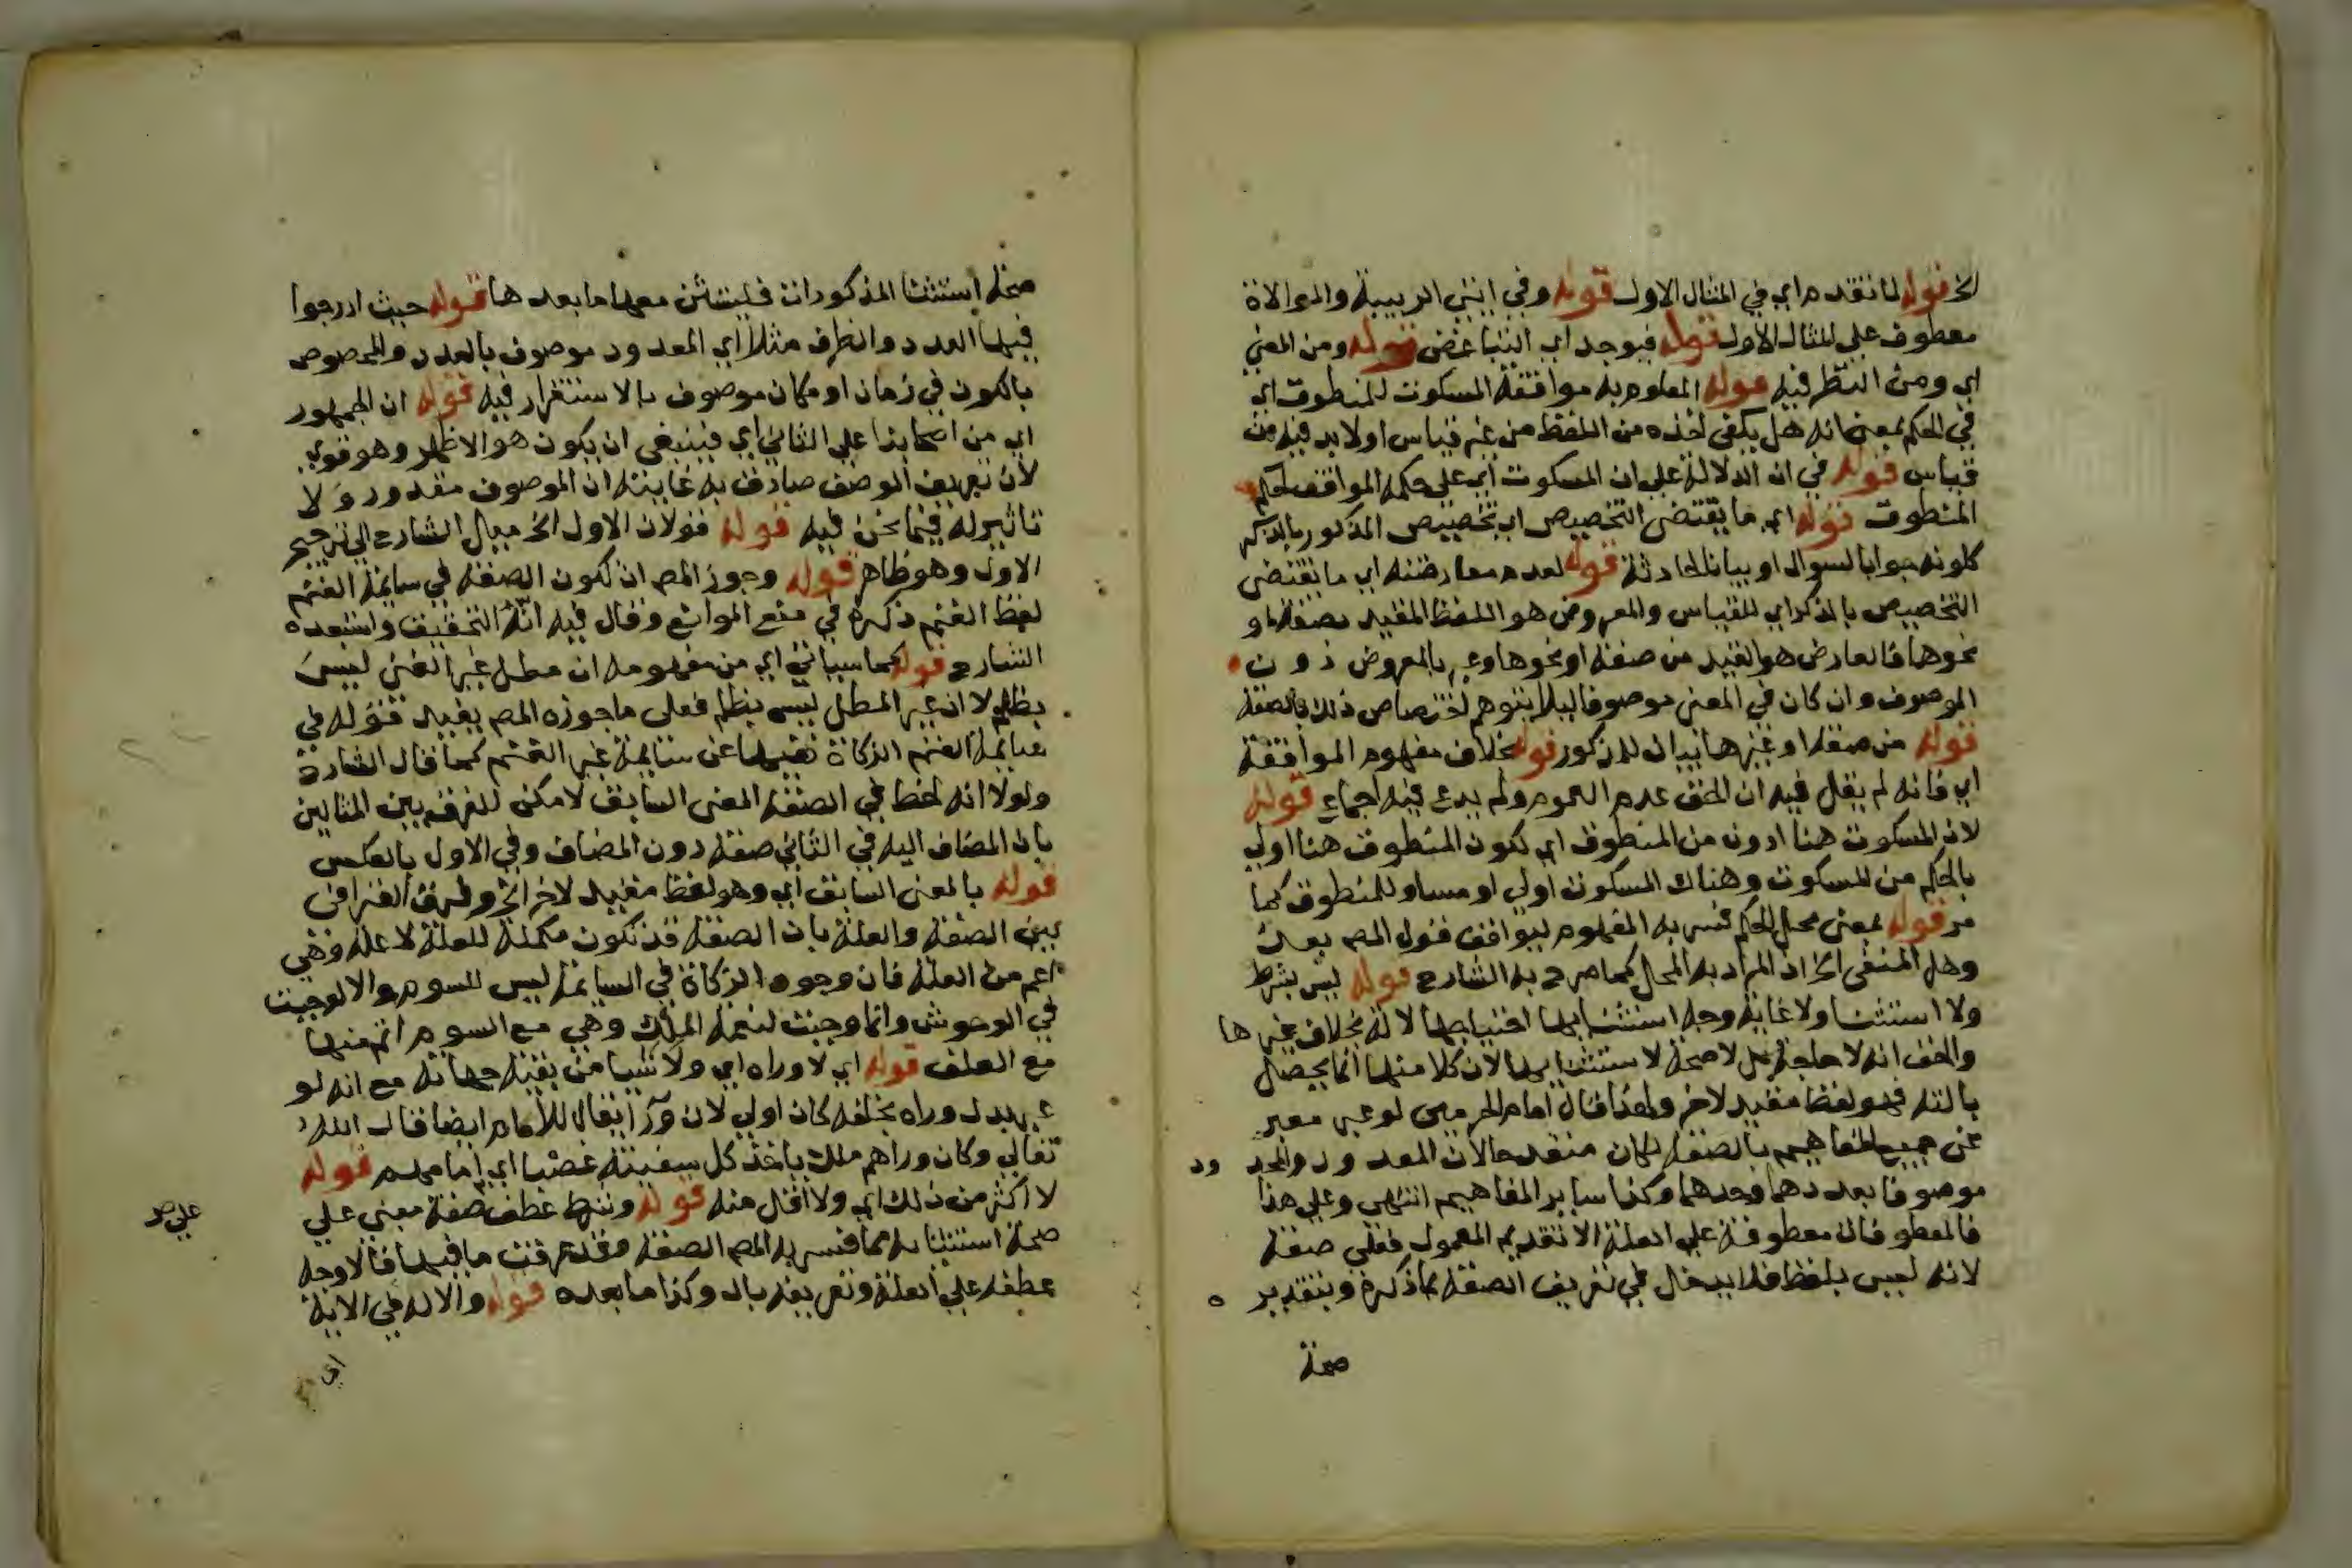 الخ قوله لما تقدم اي في المثال الاول قوله وفي انتفى الربيبة والموالاة
معطوف على المثال الاول قوله فيوجد اي انتفا غرض قوله ومن المعني
اي ومن النظر فيه قوله المعلوم به موافقة المسكوت للمنطوق اي
في الحكم بمعنى انه هل يكفي اخذه من اللفظ من غير قياس او لا بد فيه من
قياس قوله في ان الدلالة على ان المسكوت اي على حكمه الموافق لحكم
المنطوق قوله اي ما يقتضي التخصيص اي تخصيص المذكور بالذكر
كلونه جوابا لسوال او بيانا لحادثة قوله لعدم معارضته اي ما يقتضي
التخصيص بالذكر اي للقياس والمعروض هو اللفظ المقيد بصفة او
نحوها فالعارض هو القيد من صفة او نحوها وعبر بالمعروض دون
الموصوف وان كان في المعنى موصوفا ليلا يتوهم اختصاص ذلك بالصفة
قوله من صفة او غيرها بيان للمذكور قوله بخلاف مفهوم الموافقة
اي فانه لم يقل فيه ان الحق عدم العموم ولم يدع فيه اجماع قوله
لان المسكوت هنا ادون من المنطوق اي لكون المنطوق هنا اولي
بالحكم من المسكوت وهناك المسكوت اولي او مساو للمنطوق كما
مر قوله بمعنى محل الحكم فسر به المفهوم ليوافق قول المص بعد
وهل المنفى الخ اذ المراد به المحل كما صرح به الشارح قوله ليس بشرط
ولا استثنا ولا غاية وجه استثنايها احتياجها لاله بخلاف غيرها
والحق انه لا حاجة بل لا صحة لاستثنايها لان كلا منها انما يحصل
بالته فهو لفظ مقيد لاخر ولهذا قال امام الحرمين لو عبر معبر
عن جميع المفاهيم بالصفة لكان منقدحا لان المعدود والمحدود
موصوفا بعددهما وحدهما وكذا ساير المفاهيم انتهى وعلى هذا
فالمعطوفات معطوفة على العلة الا تقديم المعمول فعلى صفة
لانه ليس بلفظ فلا يدخل في تعريف الصفة بما ذكره وبتقدير
صحة
صحة استثنا المذكورات فليستثن معها ما بعدها قوله حيث ادرجوا
فيها العدد والظرف مثلا اي المعدود موصوف بالعدد والمخصوص
بالكون في زمان او مكان موصوف بالاستقرار فيه قوله ان الجمهور
اي من اصحابنا على الثاني اي فينبغي ان يكون هو الاظهر وهو قوي
لان تعريف الوصف صادق به غايته ان الموصوف مقدر ولا
تاثير له فيما نحن فيه قوله فولان الاول الخ ميال الشارح الى ترجيح
الاول وهو ظاهر قوله وجوز المص ان تكون الصفة في سايمة الغنم
لفظ الغنم ذكره في منع الموانع وقال فيه انه التحقيق واستبعده
الشارح قوله كما سياتي اي من مفهومه ان مطل غير الغني ليس
بظلم لا ان غير المطل ليس بظلم فعلى ما جوزه المص يفيد قوله في
سايمة الغنم الزكاة نفيها عن سايمة غير الغنم كما قال الشارح
ولولا انه لحظ في الصفة المعنى السابق لامكن للفرقه بين المثالين
بان المضاف اليه في الثاني صفة دون المضاف وفي الاول بالعكس
قوله بالمعنى السابق اي وهو لفظ مقيد لاخر الخ وفرق القرافي
بين الصفة والعلة بان الصفة قد تكون مكملة للعلة لا علة وهي
اعم من العلة فان وجوه الزكاة في السايمة ليس للسوم والا لوجبت
في الوحوش وانما وجبت لنعمة الملك وهي مع السوم اتم منها
مع العلف قوله اي لا وراه اي ولا شيا من بقية جهاته مع انه لو
عبر بدل وراه بخلفه لكان اولي لان ورا يقال للامام ايضا قال الله
تعالي وكان وراهم ملك ياخذ كل سفينة غصبا اي امامهم قوله
لا اكثر من ذلك اي ولا اقل منه قوله وشرط عطف صفة معنى على
على صر
صحة استثنايه مما فسر به المص الصفة وقد عرفت ما فيها فالاوجه
عطفه على العلة وتعريفه بال وكذا ما بعده قوله والاله في الاية
اي